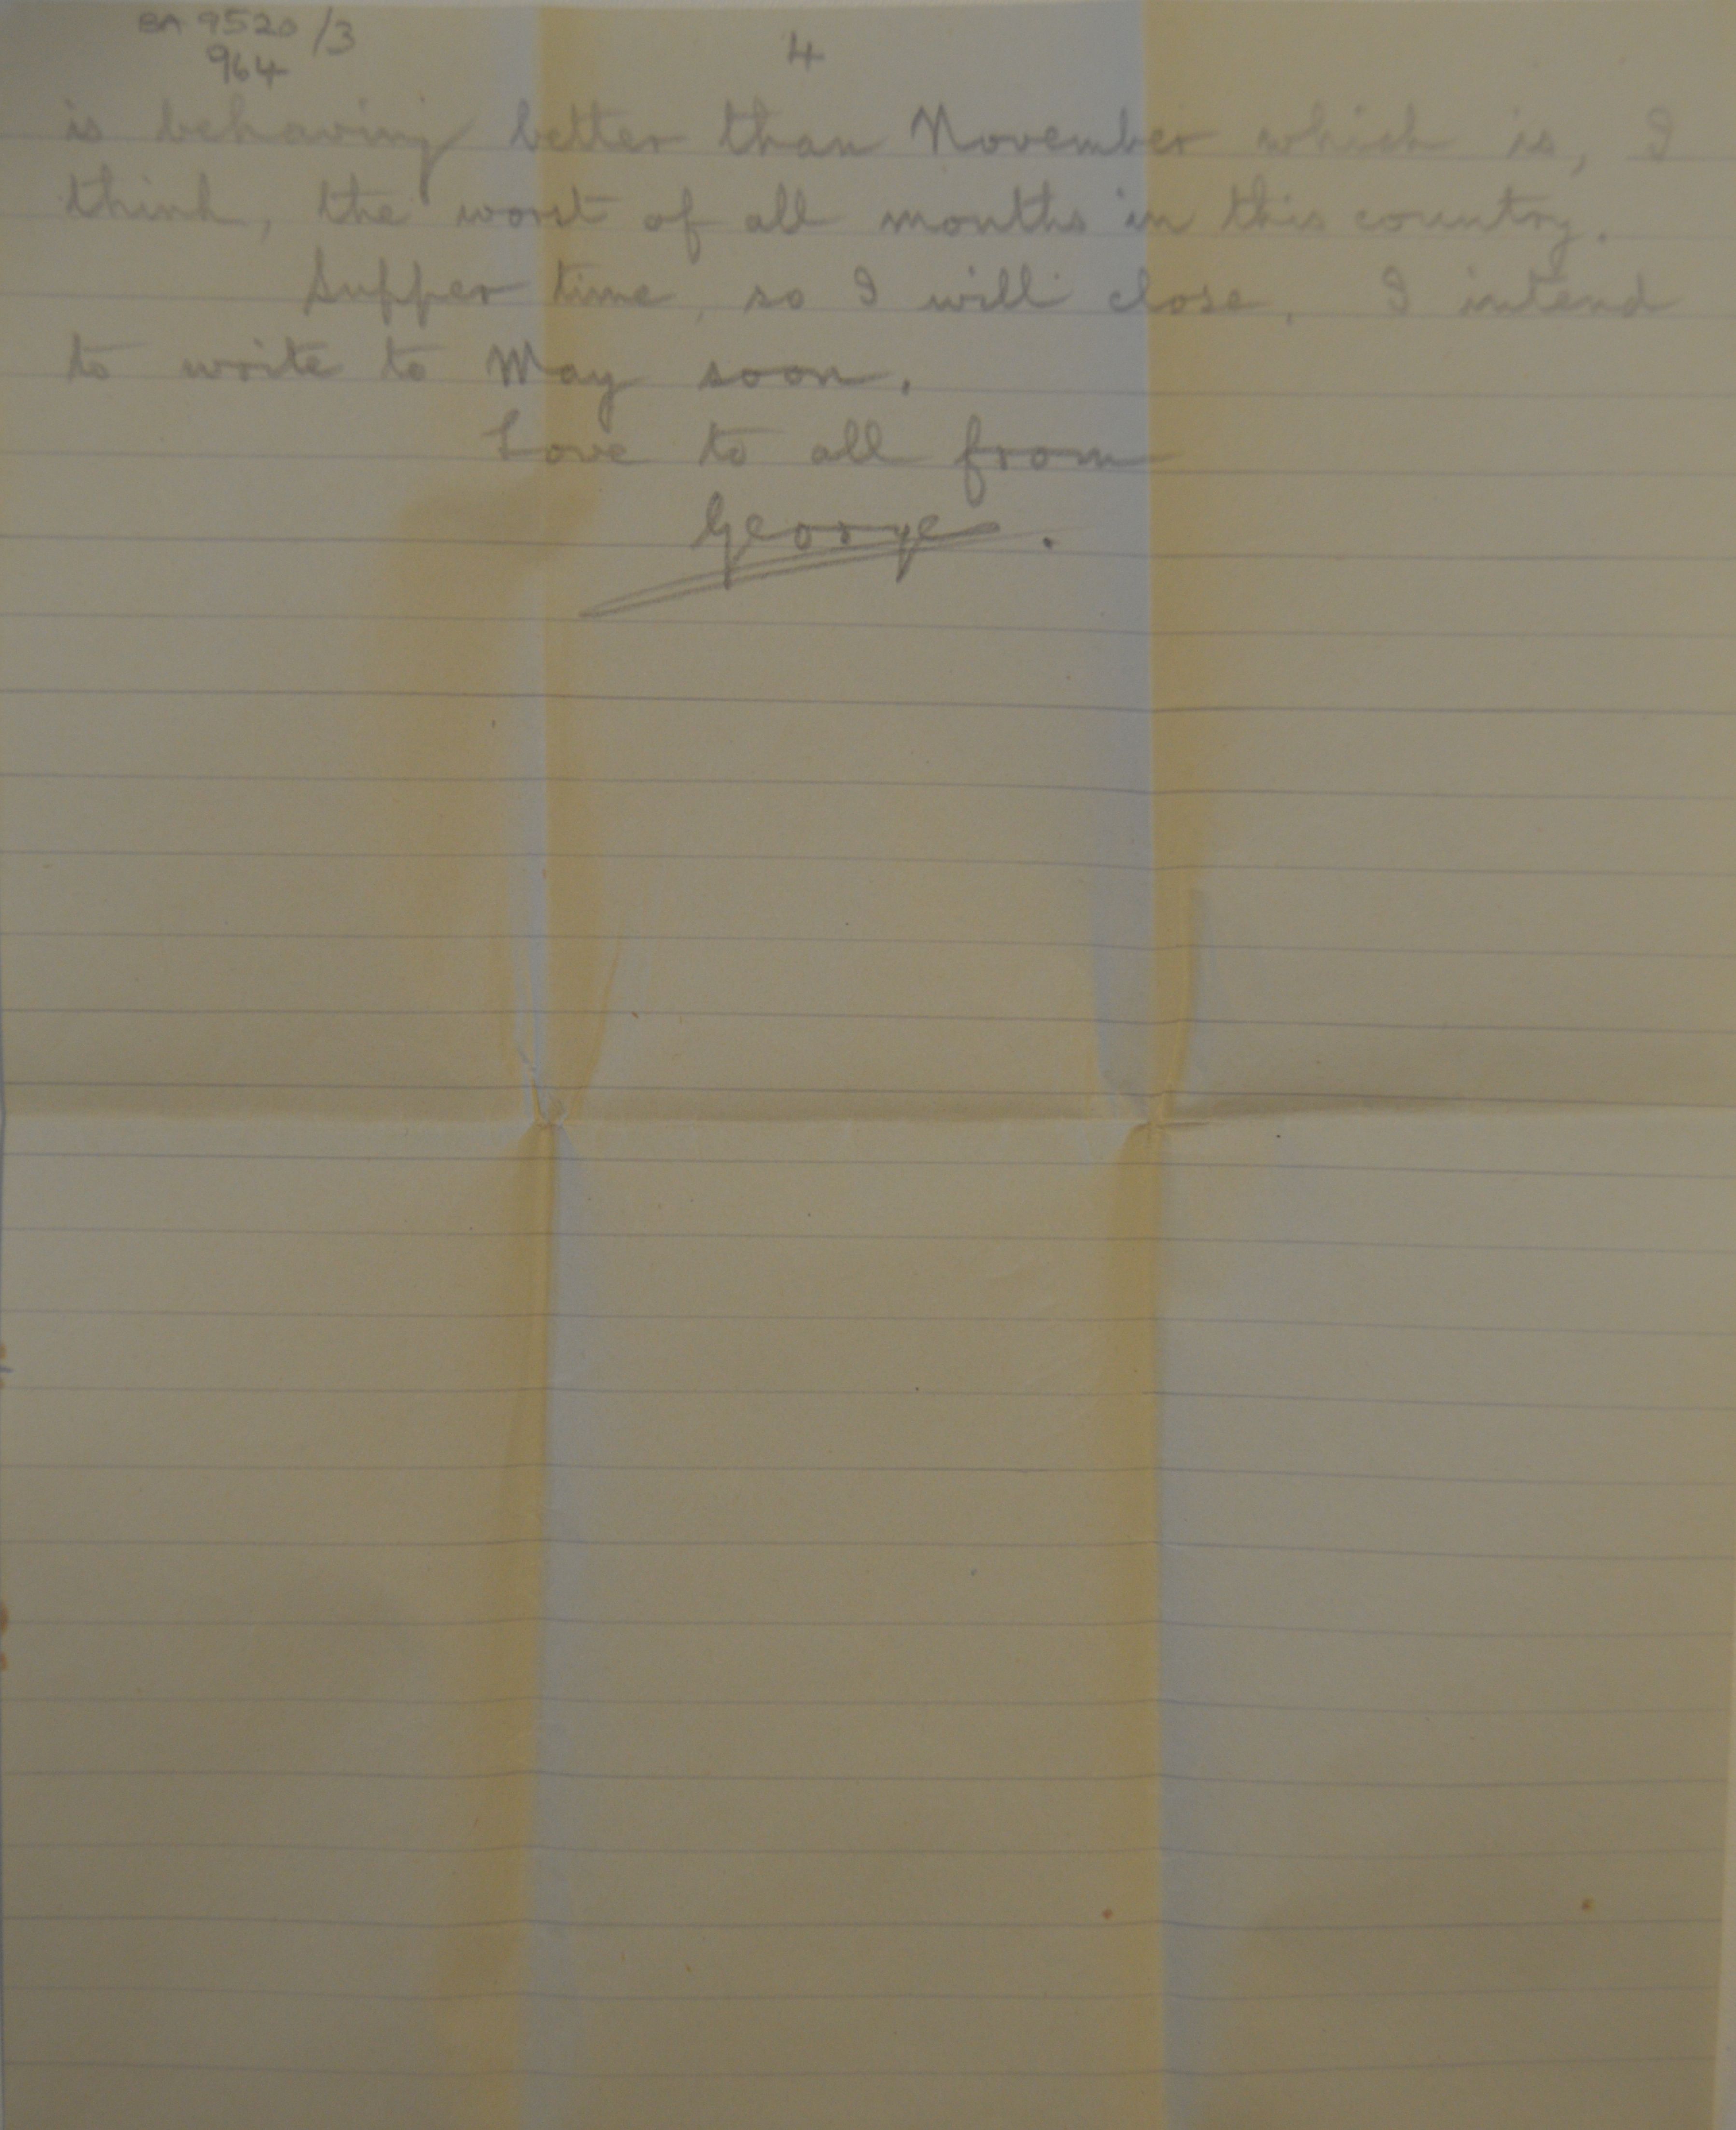 BA 9520/3
964
4
is behaving better than November which is, I
think, the worst of all months in this country.
Supper time, so I will close. I intend
to write to May soon.
Love to all from
George.